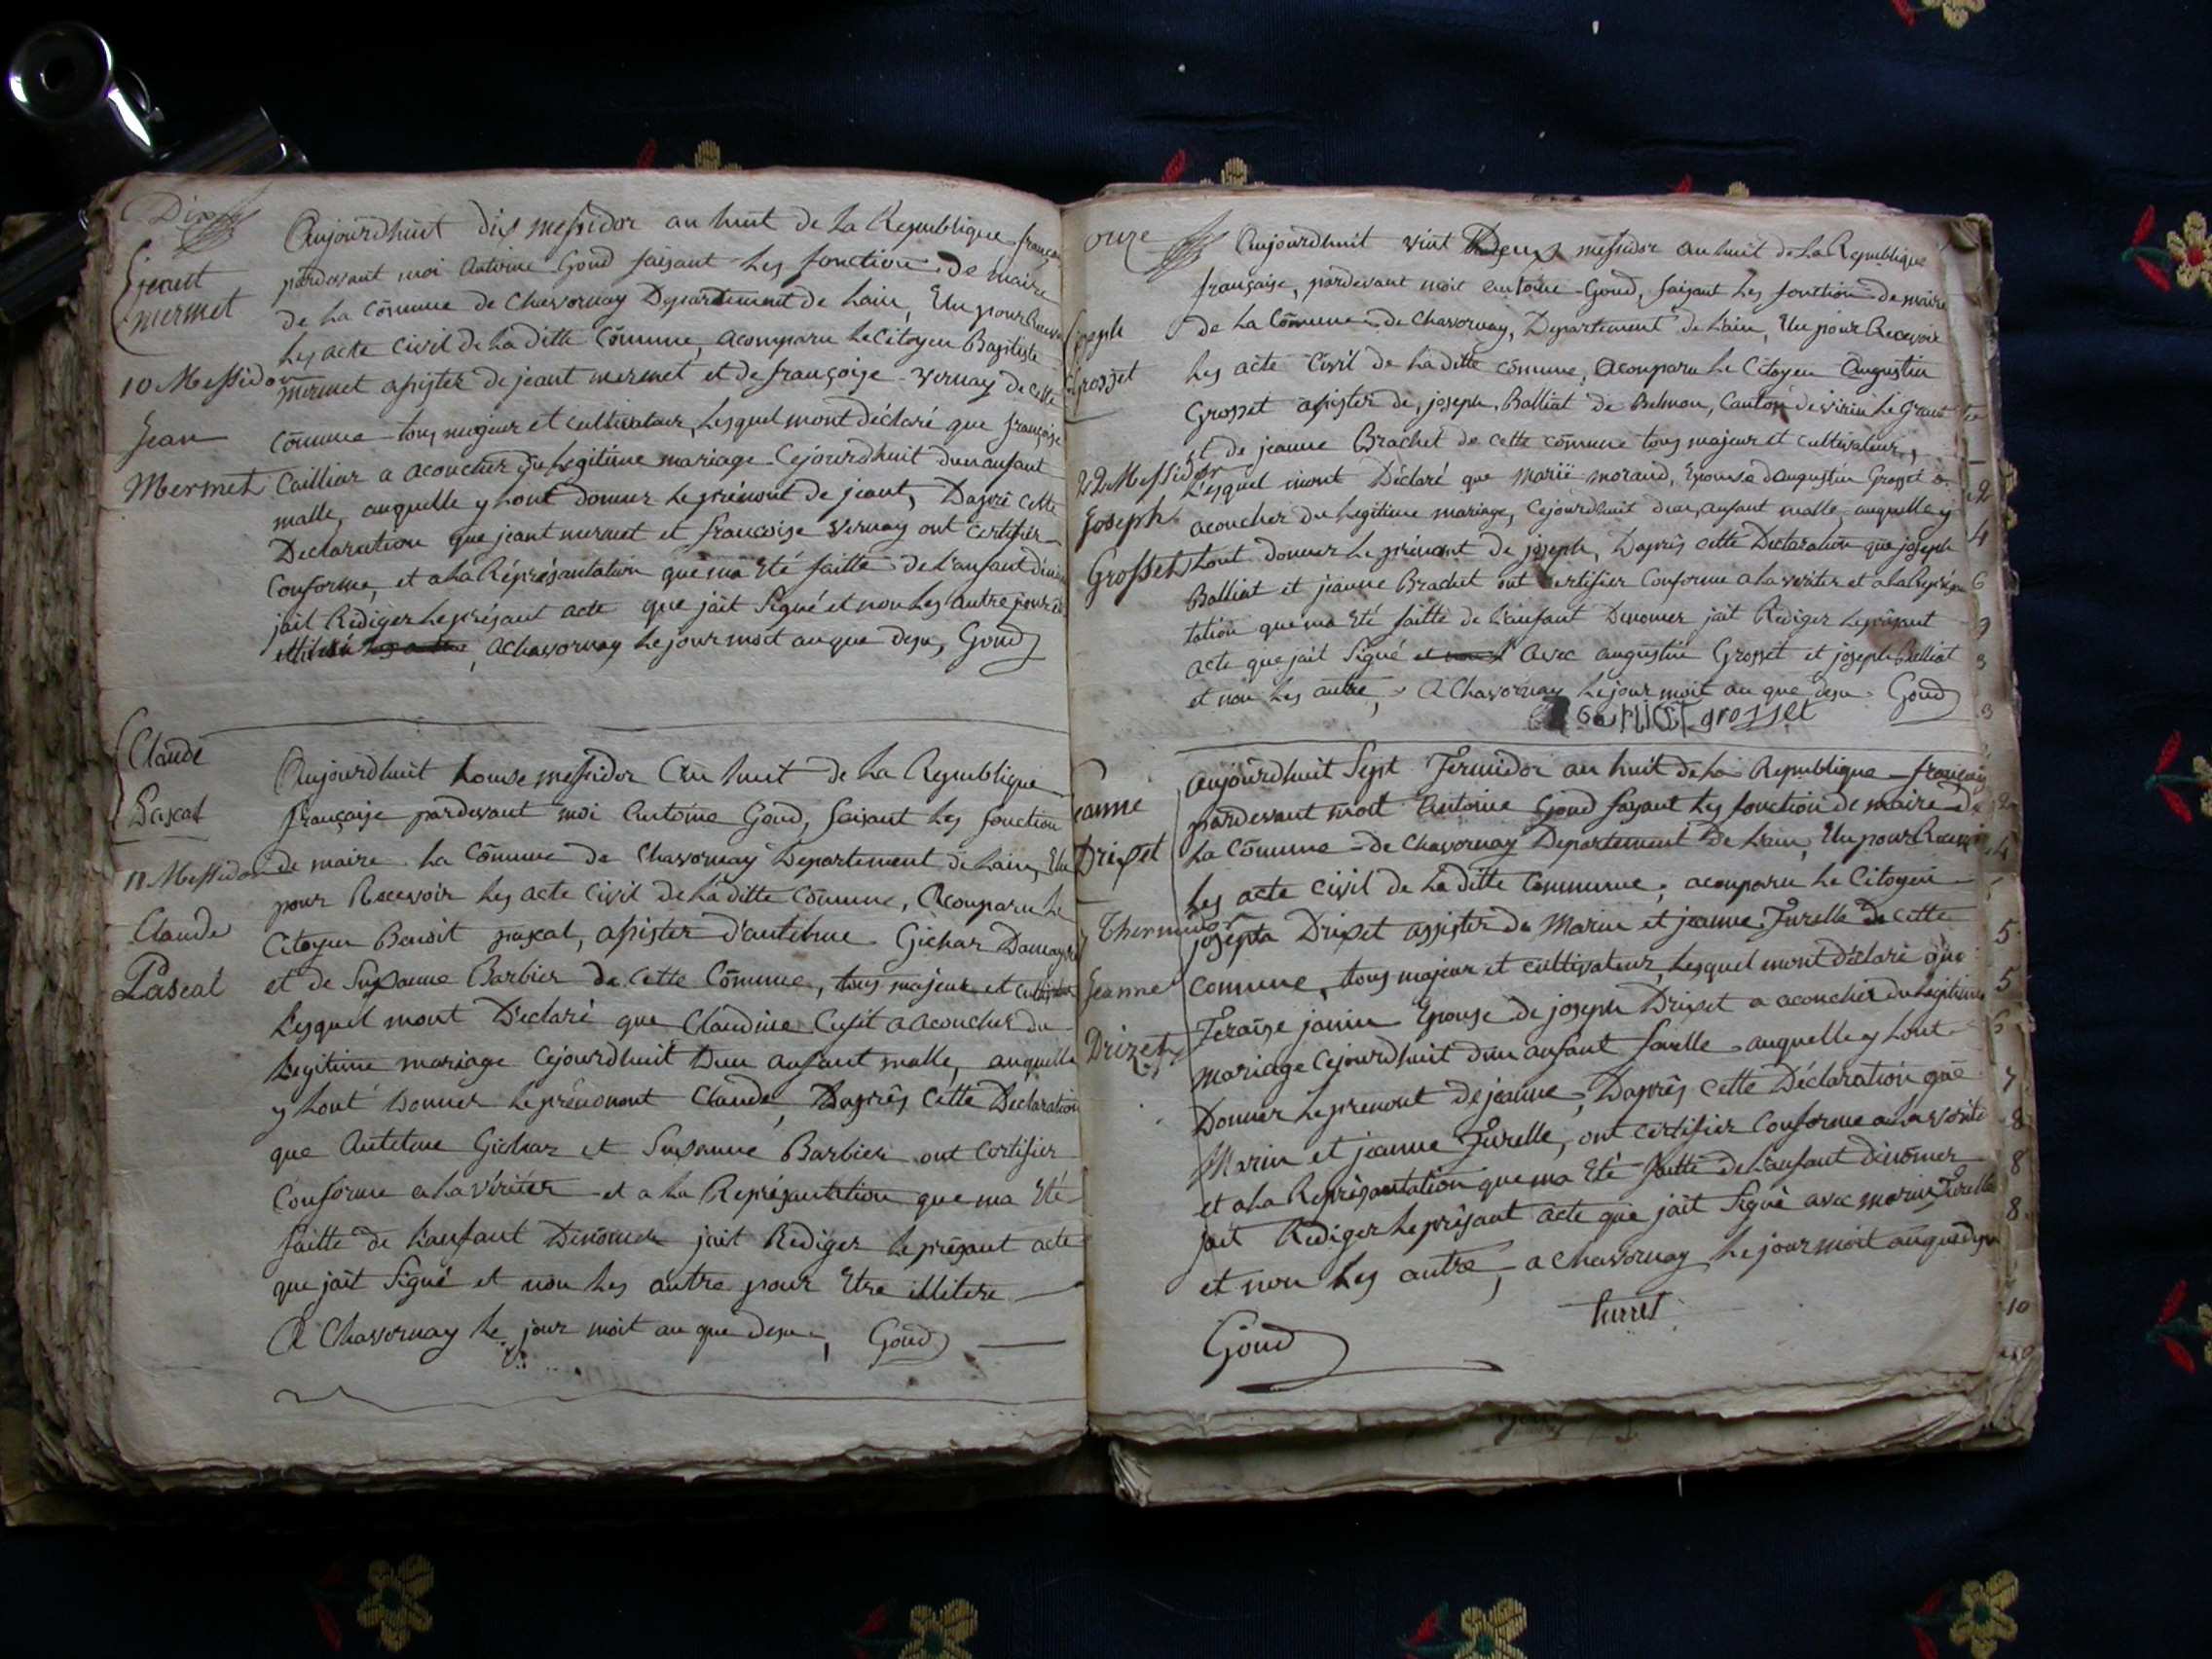 Dix
jeant
mermet
10 Messidor
Jean
Mermet
Aujourdhuit dix messidor an huit de la Republique françai
pardevant moi Antoine Goud faisant les fonction de maire
de la Cômune de Chavornay Departement de Lain, Elu pour Recevoir
les acte civil de la ditte Cômune, acomparu le Citoyen Baptiste
mermet assister de jeant mermet et de françoise Vernay de cette
Cômune tous majeur et Cultivateur, lesquel mont déclaré que françoise
Cailliar a acoucher du legitime mariage Cejourdhuit dun anfant
malle, auquelle y lont donner le prénont de jeant, Daprè cette
Declaration que jeant mermet et francoise Vernay ont certifier
Conforme, et a la Réprésantation que ma Eté faitte de l'anfant
jait Rediger le présant acte que jait Signé et non les autre pour
illiteré a chavornay le jour moit an que desu, Goud
Claude
Pascal
11 Messidor
Claude
Pascal
Aujourdhuit honse messidor an huit de la Republique
française pardevant moi Antoine Goud, faisant les fonction
de maire la Cômune de Chavornay Departement de Lain, Elu
pour Recevoir les acte Civil de la ditte Cômune, Acomparu le
Citoyen Benoit pascal, assister d'antelme Gichar
et de Susanne Barbier de cette Cômune, tous majeur et
lesquel mont Déclaré que Claudine Cusit a acoucher du
legitime mariage Cejourdhuit Dun anfant malle, auquelle
y lont Donner le prénomont Claude, Daprês Cette Declaration
que Antelme Gichar et Susanne Barbier ont Certifier
Conforme a la vériter et a la Représantation que ma Eté
faitte de lanfant Dénomer jait Rediger le présant acte
que jait Signé et non les autre pour Etre illitere
A Chavornay le jour moit an que desu, Goud
onze
joseph
Grosset
22 Messidor
Joseph
Grosset
Aujourdhuit vint Deux messidor an huit de La Republique
française, pardevant moit antoine Goud, faisant les fonction de maire
de la Cômune de Chavornay, Departement de Lain, Elu pour Recevoir
les acte Civil de la ditte cômune, acomparu le Citoyen Augustin
Grosset assister de joseph Balliat de Belmon, Canton de virin le Grant
et de jeanne Brachet de cette cômune tous majeur et cultivateur,
Lesquel mont Déclaré que Marie morand, Epouse daugustin Grosset a
acoucher du legitime mariage, Cejourdhuit dun anfant malle auquelle y
lont donner le prénont de joseph, Daprès cette Declaration que joseph
Balliat et jeanne Brachet ont certifier Conforme a la veriter et a la Représan
tation que ma Eté faitte de l'anfant Denomer jait Rediger le présant
acte que jait Signé avec augustin Grosset et joseph Balliat
et non les autre, A Chavornay le jour moit an que desu Goud
grosset
jeanne
Drizet
7 Thermidor
Jeanne
Drizet
Aujourdhuit Sept Termidor an huit de la Republique française
pardevant moit Antoine Goud fasant les fonction de maire de
la Cômune de Chavornay Departement de Lain, Elu pour Recevoir
les acte civil de la ditte Commune, acomparu le Citoyen
joseph Drizet assister de Marin et jeanne Furelle de cette
Comune, tous majeur et cultivateur, lesquel mont déclaré que
Feraise janin Epouse de joseph Drizet a acoucher du legitime
mariage Cejourdhuit dun anfant fmelle auquelle y lont
Donner le prenont de jeanne, Daprês cette Déclaration que
Marin et jeanne Furelle, ont certifier Conforme a la vérité
et a la Représantation que ma Eté faitte de lanfant dénomer
jait Rediger le présant acte que jait Signé avec marin Furelle
et non les autre, a chavornay le jour moit an que desu
Goud